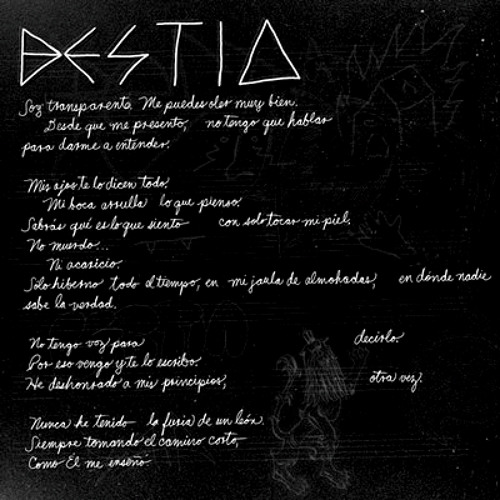 BESTIA
Soy transparente. Me puedes oler muy bien.
Desde que me presento, no tengo que hablar
para darme a entender.
Mis ojos te lo dicen todo.
Mi boca arrulla lo que pienso.
Sabrás qué es lo que siento con solo tocar mi piel.
No muerdo...
Ni acaricio.
Sólo hiberno todo el tiempo, en mi jaula de almohadas, en dónde nadie
sabe la verdad.
No tengo voz para decirlo.
Por eso vengo y te lo escribo.
He deshonrado a mis principios, otra vez.
Nunca he tenido la furia de un león.
Siempre tomando el camino corto,
Como Él me enseñó